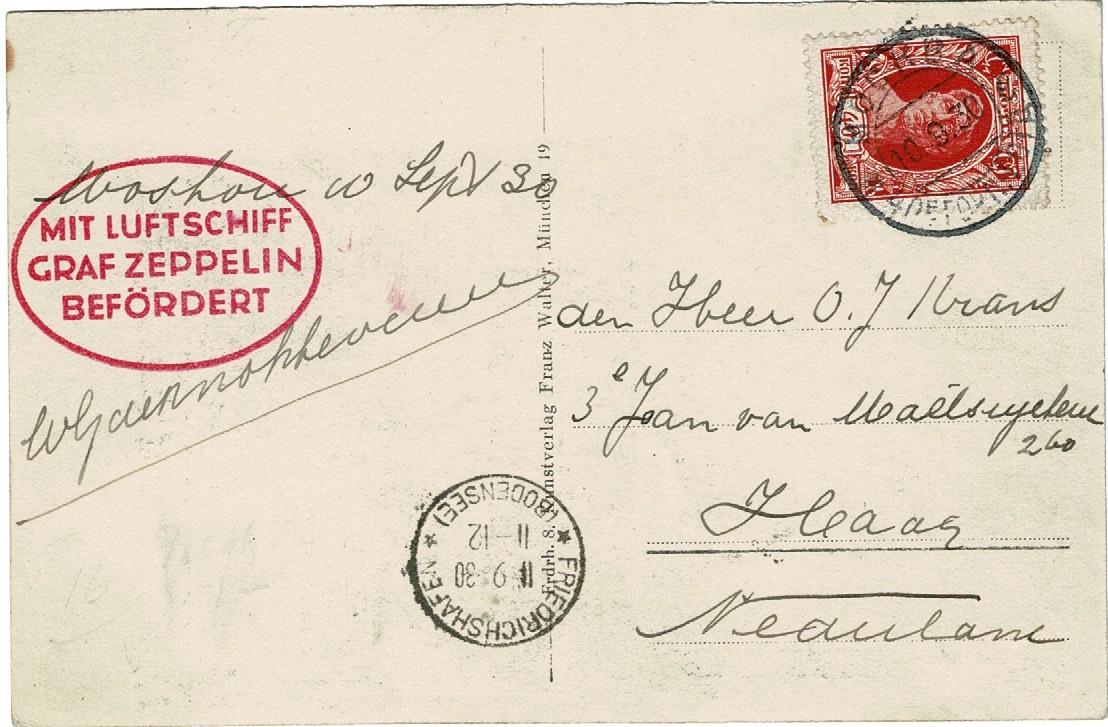 Moskou 10 Sept 30
MIT LUFTSCHIFF
GRAF ZEPPELIN
BEFÖRDERT
Franz Walter, München 19
10.9.30
den Heer O. J Krans
3e Jan van
260
Haag
FRIEDRICHSHAFEN
11 9 30
11-12
(BODENSEE)